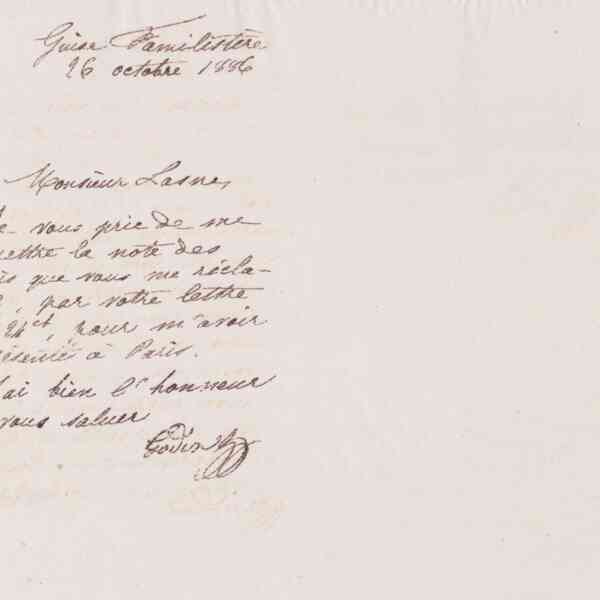 Guise Familistère
26 octobre 1886
Monsieur Lasne,
vous prie de me
mettre la note des
que vous me récla-
, par votre lettre
24 ct, pour m'avoir
résenté à Paris.
J'ai bien l'honneur
vous saluer
Godin